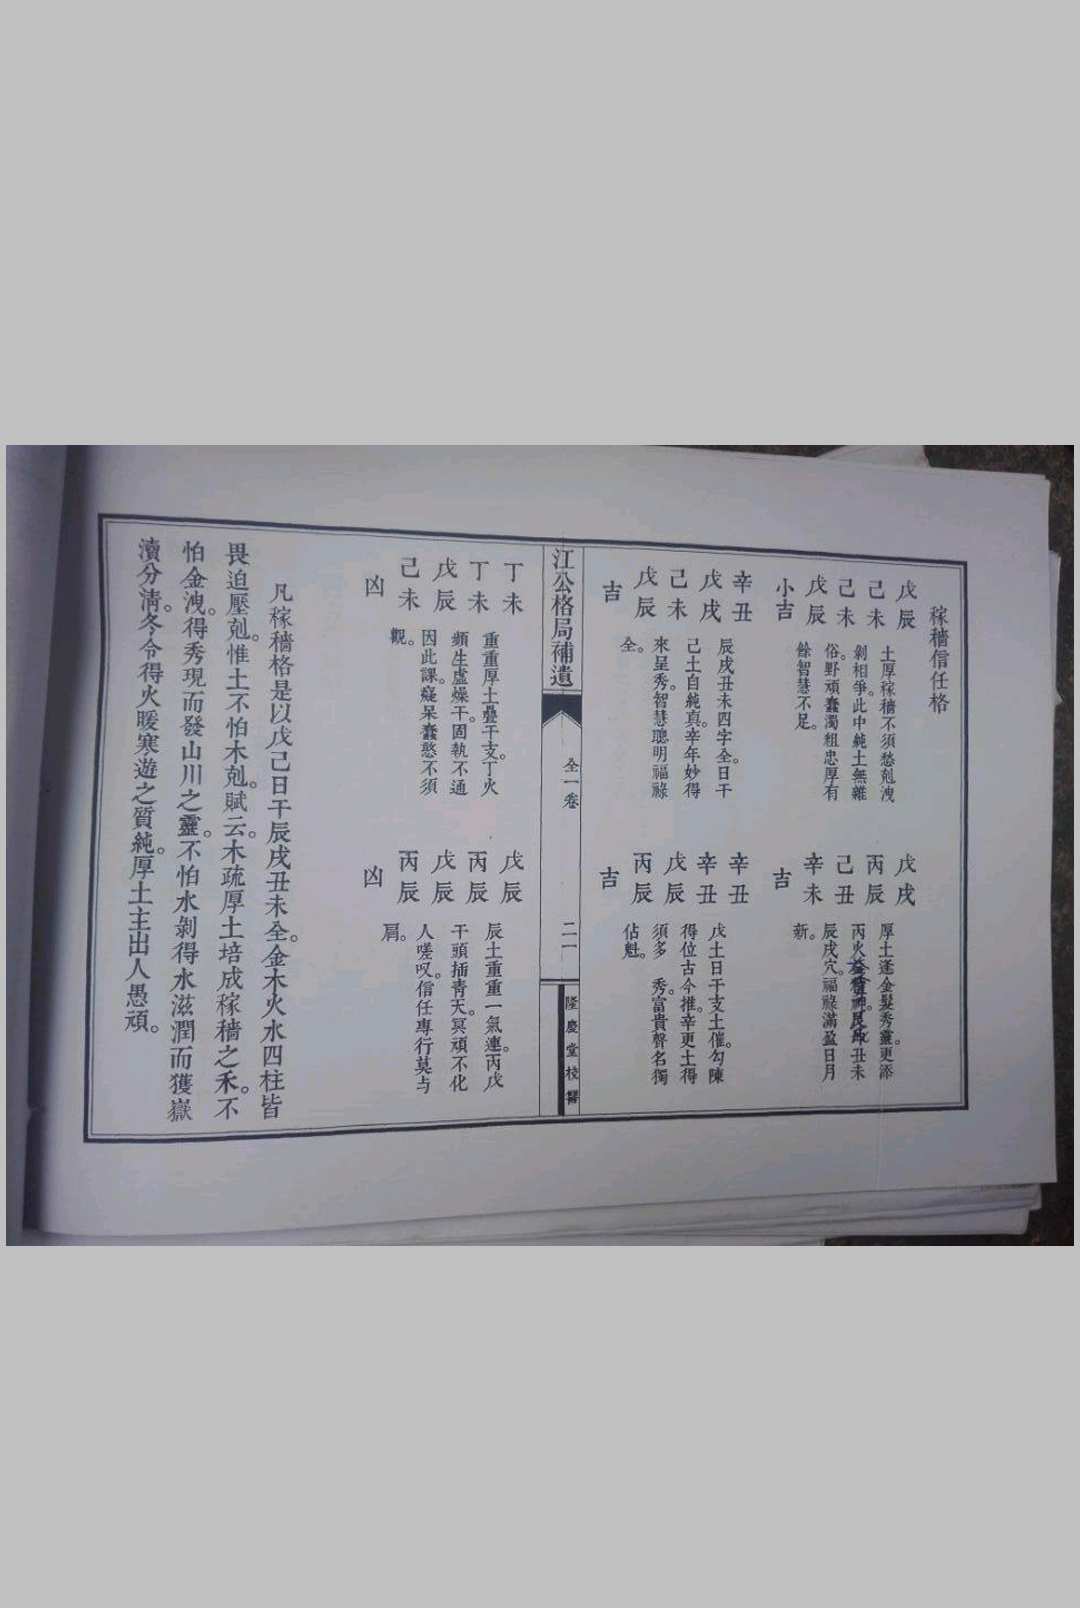 稼穡信任格
戊辰
己未
己未
戊辰
小吉
土厚稼穡不須愁剋洩
剝相爭。此中純土無雜
俗。野頑蠢濁粗忠厚有
餘智慧不足。
戊戌
丙辰
己丑
辛未
吉
厚土逢金髮秀靈。更添
丙火神。丑未
辰戌穴。福祿滿盈日月
新。
辛丑
戊戌
己未
戊辰
吉
辰戌丑未四字全。日干
己土自純真。辛年妙得
來呈秀。智慧聰明福祿
全。
辛丑
辛丑
戊辰
丙辰
吉
戊土日干支土催。勾陳
得位古今推。辛更土得
須多 秀。富貴聲名獨
佔魁。
江公格局補遺
全一卷
二一
隆慶堂校
丁未
丁未
戊辰
己未
凶
重重厚土疊干支。丁火
頻生虛燥干。固執不通
因此課。癡呆蠢憨不須
觀。
戊辰
丙辰
戊辰
丙辰
凶
辰土重重一氣連。丙戊
干頭插青天。冥頑不化
人嗟叹。信任專行莫与
肩。
凡稼穡格是以戊己日干辰戌丑未全。金木火水四柱皆
畏迫壓剋。惟土不怕木剋。賦云。木疏厚土培成稼穡之禾。不
怕金洩。得秀現而發山川之靈。不怕水剝得水滋潤而獲嶽
瀆分淸。冬令得火暖寒遊之質純。厚土主出人愚頑。